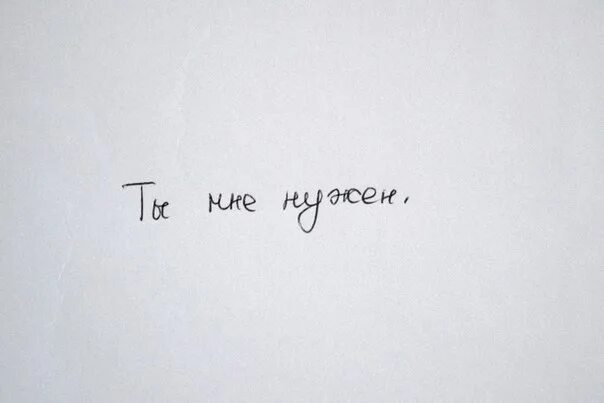 Ты мне нужен.